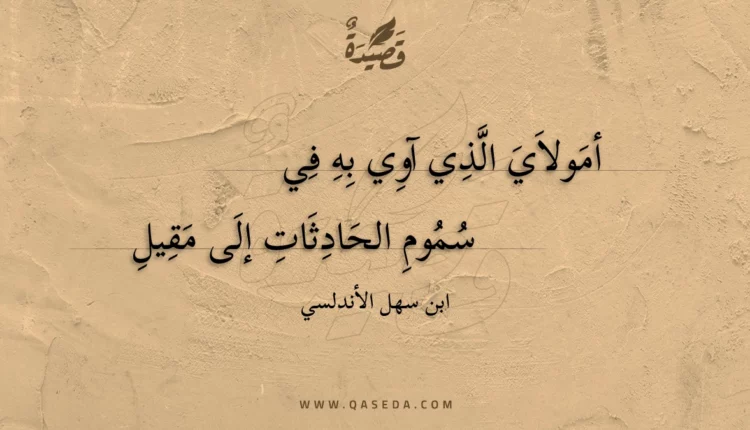 قَصِيدَةٌ
أمَولاَيَ الَّذِي آوِي بِهِ فِي
سُمُومِ الحَادِثَاتِ إلَى مَقِيلِ
ابن سهل الأندلسي
WWW.QASEDA.COM